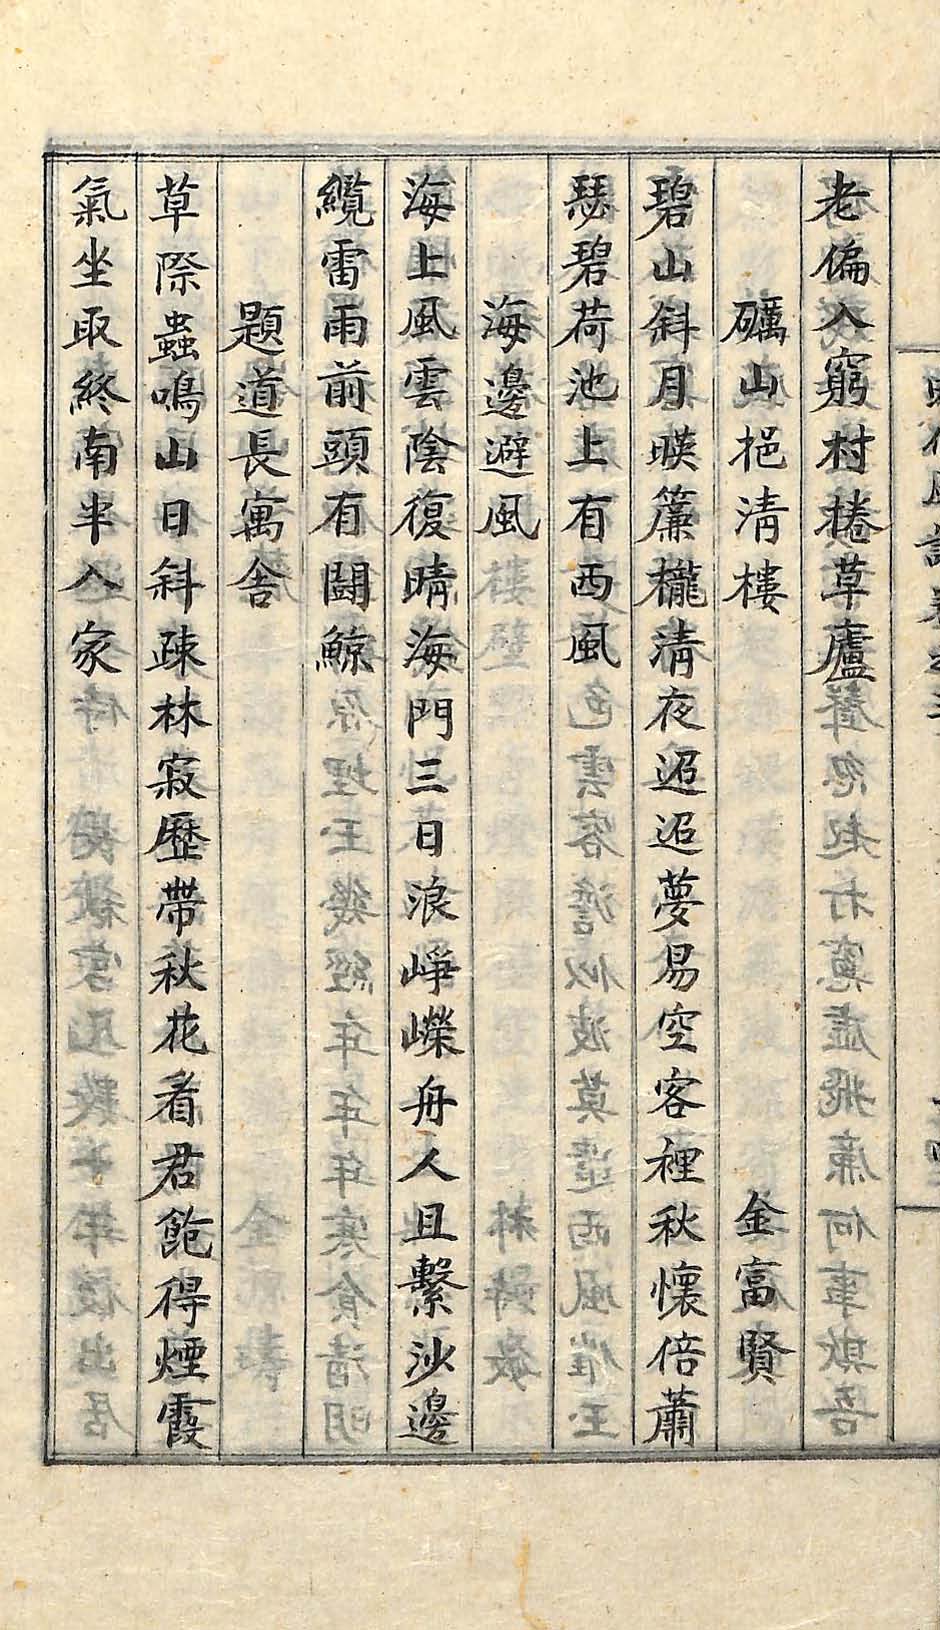 老偏入窮村捲草廬
礪山挹清樓 金富賢
碧山斜月暎簾櫳清夜迢迢夢易空客裡秋懷倍蕭
瑟碧荷池上有西風
海邊避風
海上風雲陰復晴海門三日浪崢嶸舟人且繫沙邊
纜雷雨前頭有鬪鯨
題道長寓舍
草際蟲鳴山日斜疎林寂歷帶秋花看君飽得煙霞
氣坐取終南半入家